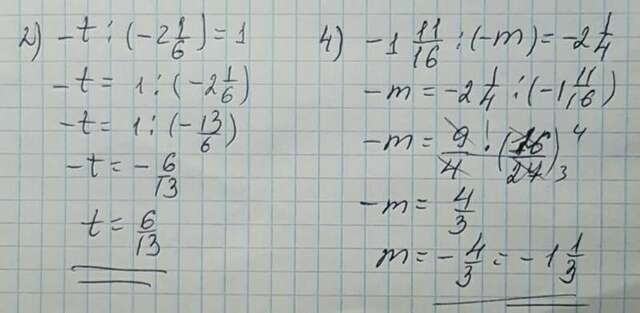 2) -t : (-2 1/6) = 1
-t = 1 : (-2 1/6)
-t = 1 : (-13/6)
-t = -6/13
t = 6/13
4) -1 11/16 : (-m) = -2 1/4
-m = -2 1/4 : (-1 11/16)
-m = 9/4 : (16/27) 4 3
-m = 4/3
m = -4/3 = -1 1/3